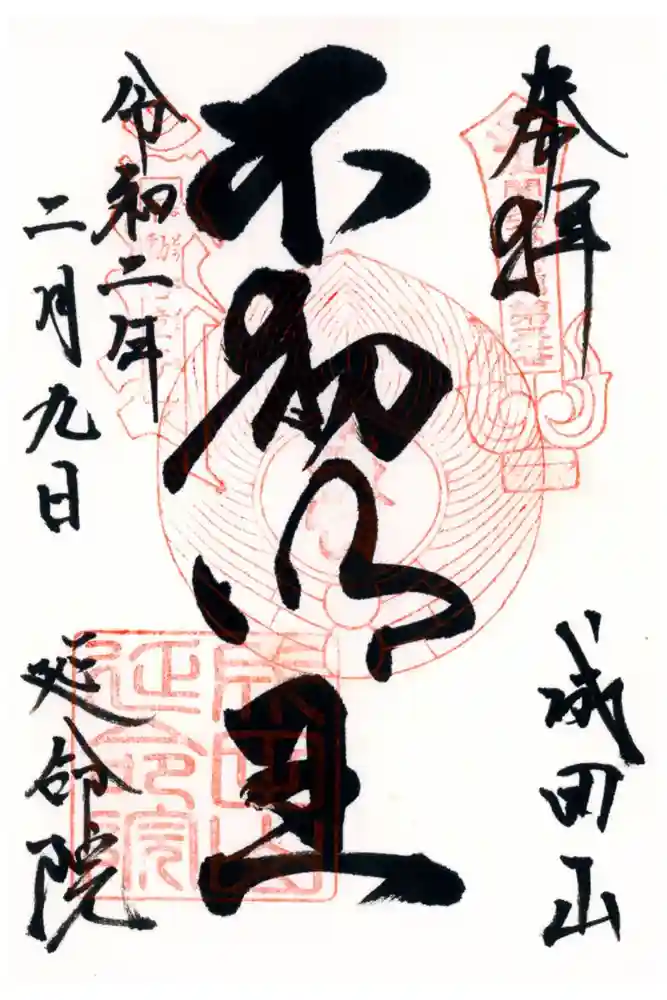 奉拝
成田山
不動明王
令和二年
二月九日
延命院
成田山
延命院